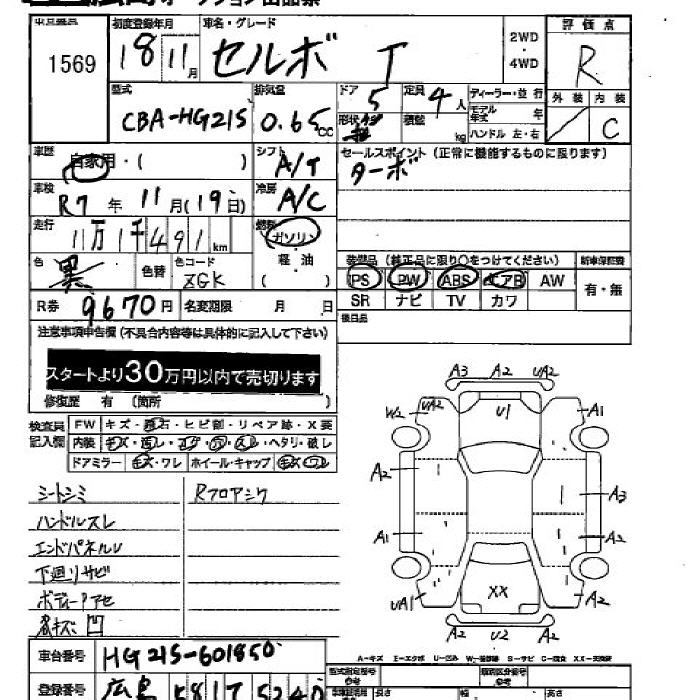 車名・グレード
初度登録年月
評価点
1569
18 11月
セルボ T
2WD
・
4WD
R
型式
排気量
ドア 5
定員 4人
ディーラー・並行
外装 内装
CBA-HG21S
0.65cc
形状
積載 kg
モデル年式 年
ハンドル 左・右
C
車歴
自家用・( )
シフト A/T
セールスポイント(正常に機能するものに限ります)
ターボ
車検
R7 年 11月(19日)
冷房 A/C
走行
11万1千491km
燃料
ガソリン
軽油
( )
色 黒
色替
色コード ZGK
装備品(純正品に限り○をつけてください)
新車保証書
PS PW ABS エアB AW
有・無
SR ナビ TV カワ
R券 9670円
名変期限 月 日
後日品
注意事項申告欄(不具合内容等は具体的に記入して下さい)
スタートより30万円以内で売切ります
修復歴 有 (箇所
検査員記入欄
FW キズ・飛石・ヒビ割・リペア跡・X要
内装 キズ・汚レ・コゲ・穴・スレ・ヘタリ・破レ
ドアミラー キズ・ワレ ホイール・キャップ キズ ワレ
シートシミ Rフロアシワ
ハンドルスレ
エンドパネルU
下廻リサビ
凹
A3 A2 UA2
W2 UA2 U1 A1
A2
A3
A1 A2
XX
UA1 A2
U2 A2
A-キズ E-エクボ U-凹ミ S-サビ C-腐食
車台番号 HG21S-601850
登録番号 広島 K81T 5240
長さ 幅 高さ